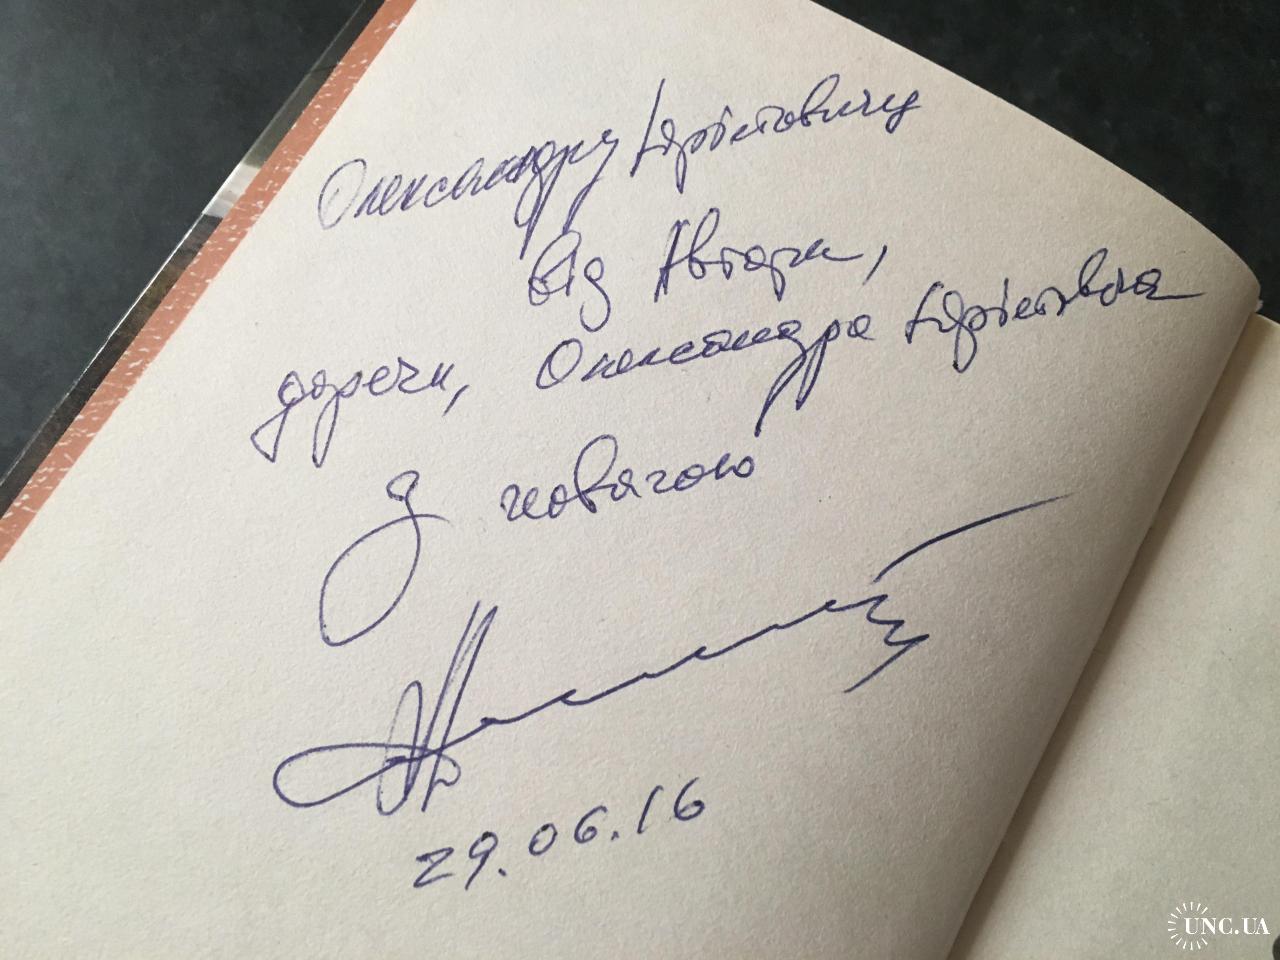 Олександру Юрійовичу
від Автора,
до речі, Олександра Юрійовича
З повагою
29.06.16
UNC.UA